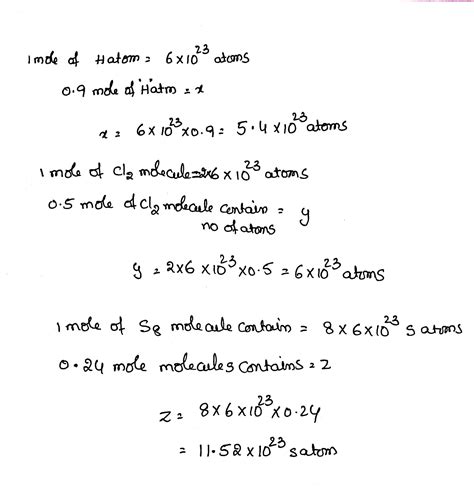 1 mole of H atom = 6×10²³ atoms
0.9 mole of "H" atm = x
x = 6×10²³×0.9 = 5.4×10²³ atoms
1 mole of Cl₂ molecule = 2×6×10²³ atoms
0.5 mole of Cl₂ molecule contain = y
no of atoms
y = 2×6×10²³×0.5 = 6×10²³ atoms
1 mole of S₈ molecule contain = 8×6×10²³ s atoms
0.24 mole molecules contains = z
z = 8×6×10²³×0.24
= 11.52×10²³ s atom